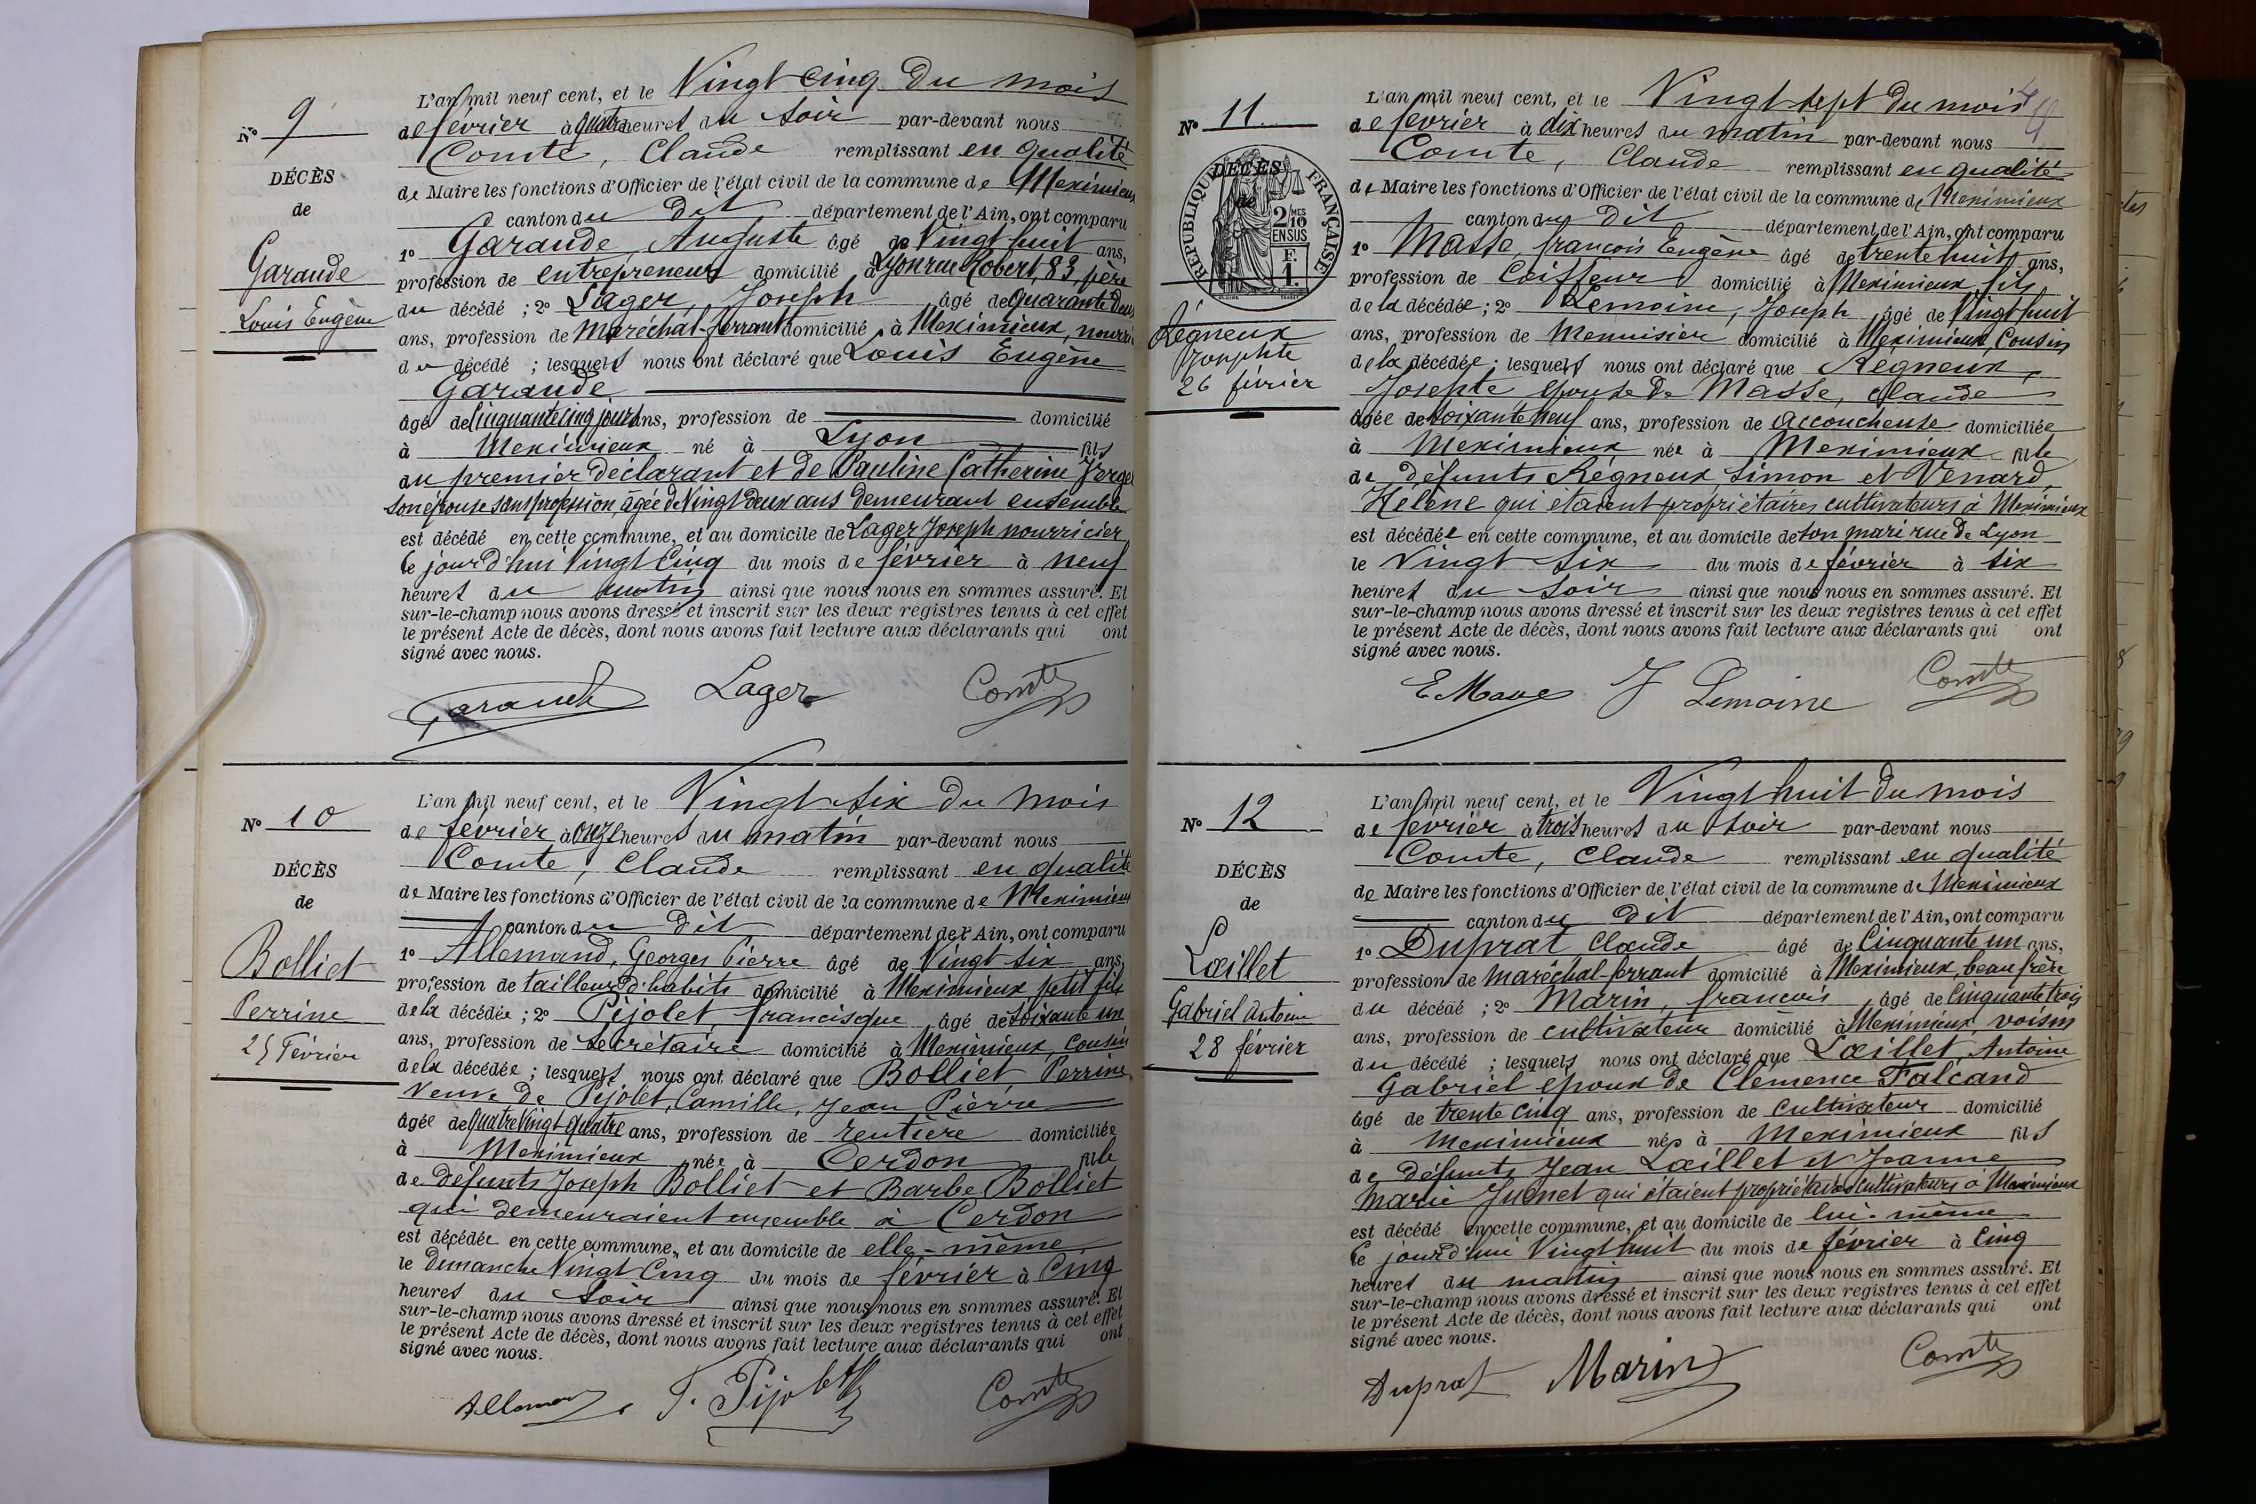 N° 9
DÉCÈS
de
Garaude
Louis Eugène
L'an mil neuf cent, et le Vingt cinq du mois
de février à quatre heures du soir par-devant nous
Comte, Claude remplissant en qualité
de Maire les fonctions d'Officier de l'état civil de la commune de Meximieux
canton du dit département de l'Ain, ont comparu
1° Garaude, Auguste âgé de Vingt huit ans,
profession de entrepreneur domicilié à Lyon rue Robert, 83, père
du décédé ; 2° Lager, Joseph âgé de Quarante deux
ans, profession de Maréchal-ferrant domicilié à Meximieux, nourricier
du décédé ; lesquels nous ont déclaré que Louis Eugène
Garaude
âgé de Cinquante cinq jours ans, profession de domicilié
à Meximieux né à Lyon fils
du premier déclarant et de Pauline Catherine
son épouse sans profession, âgée de Vingt deux ans demeurant ensemble
est décédé en cette commune, et au domicile de Lager Joseph nourricier
ce jourd'hui Vingt Cinq du mois de février à neuf
heures du matin ainsi que nous nous en sommes assuré. Et
sur-le-champ nous avons dressé et inscrit sur les deux registres tenus à cet effet
le présent Acte de décès, dont nous avons fait lecture aux déclarants qui ont
signé avec nous.
Garaude Lager Comte
N° 10
DÉCÈS
de
Bolliet
Perrine
25 Février
L'an mil neuf cent, et le Vingt six du mois
de février à onze heures du matin par-devant nous
Comte, Claude remplissant en qualité
de Maire les fonctions d'Officier de l'état civil de la commune de Meximieux
canton du dit département de l'Ain, ont comparu
1° Allemand, Georges Pierre âgé de Vingt six ans,
profession de tailleur d'habits domicilié à Meximieux petit fils
de la décédée ; 2° Pijolet, francisque âgé de soixante un
ans, profession de secrétaire domicilié à Meximieux, cousin
de la décédée ; lesquels nous ont déclaré que Bolliet, Perrine
Veuve de Pijolet, Camille, Jean Pierre
âgée de Quatre Vingt quatre ans, profession de rentière domiciliée
à Meximieux née à Cerdon fille
de défunts Joseph Bolliet et Barbe Bolliet
qui demeuraient ensemble à Cerdon
est décédée en cette commune, et au domicile de elle-même
le Dimanche Vingt Cinq du mois de février à Cinq
heures du soir ainsi que nous nous en sommes assuré. Et
sur-le-champ nous avons dressé et inscrit sur les deux registres tenus à cet effet
le présent Acte de décès, dont nous avons fait lecture aux déclarants qui ont
signé avec nous.
F. Pijolet Comte
N° 11
DÉCÈS
de
RÉPUBLIQUE FRANÇAISE
2/10 MES
EN SUS
F.
1.
Régneux
Josephte
26 février
L'an mil neuf cent, et le Vingt sept du mois
de février à dix heures du matin par-devant nous
Comte, Claude remplissant en qualité
de Maire les fonctions d'Officier de l'état civil de la commune de Meximieux
canton du dit département de l'Ain, ont comparu
1° Masse, françois Eugène âgé de trente huit ans,
profession de Coiffeur domicilié à Meximieux, fils
de la décédée ; 2° Lemoine, Joseph âgé de Vingt huit
ans, profession de Menuisier domicilié à Meximieux, Cousin
de la décédée ; lesquels nous ont déclaré que Régneux,
Josepte épouse de Masse, Claude
âgée de soixante neuf ans, profession de accoucheuse domiciliée
à Meximieux née à Meximieux fille
de défunts Regneux, Simon et Venard,
Hélène qui étaient propriétaires cultivateurs à Meximieux
est décédée en cette commune, et au domicile de son mari rue de Lyon
le Vingt six du mois de février à six
heures du soir ainsi que nous nous en sommes assuré. Et
sur-le-champ nous avons dressé et inscrit sur les deux registres tenus à cet effet
le présent Acte de décès, dont nous avons fait lecture aux déclarants qui ont
signé avec nous.
E Masse J Lemoine Comte
N° 12
DÉCÈS
de
Lœillet
Gabriel Antoine
28 février
L'an mil neuf cent, et le Vingt huit du mois
de février à trois heures du soir par-devant nous
Comte, Claude remplissant en qualité
de Maire les fonctions d'Officier de l'état civil de la commune de Meximieux
canton du dit département de l'Ain, ont comparu
1° Duprat Claude âgé de Cinquante un ans,
profession de maréchal-ferrant domicilié à Meximieux, beau frère
du décédé ; 2° Marin, françois âgé de Cinquante trois
ans, profession de cultivateur domicilié à Meximieux, voisin
du décédé ; lesquels nous ont déclaré que Lœillet, Antoine
Gabriel époux de Clémence Falcand
âgé de trente cinq ans, profession de Cultivateur domicilié
à Meximieux né à Meximieux fils
de défunts Jean Lœillet et Jeanne
Marie Juenet qui étaient propriétaires cultivateurs à Meximieux
est décédé en cette commune, et au domicile de lui-même
ce jourd'hui Vingt huit du mois de février à Cinq
heures du matin ainsi que nous nous en sommes assuré. Et
sur-le-champ nous avons dressé et inscrit sur les deux registres tenus à cet effet
le présent Acte de décès, dont nous avons fait lecture aux déclarants qui ont
signé avec nous.
Duprat Marin Comte